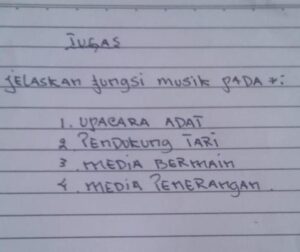 TUGAS
JELASKAN fungsi musik PADA *:
1. UPACARA ADAT
2 PENDUKUNG TARI
3. MEDIA BERMAIN
4. MEDIA PENERANGAN.